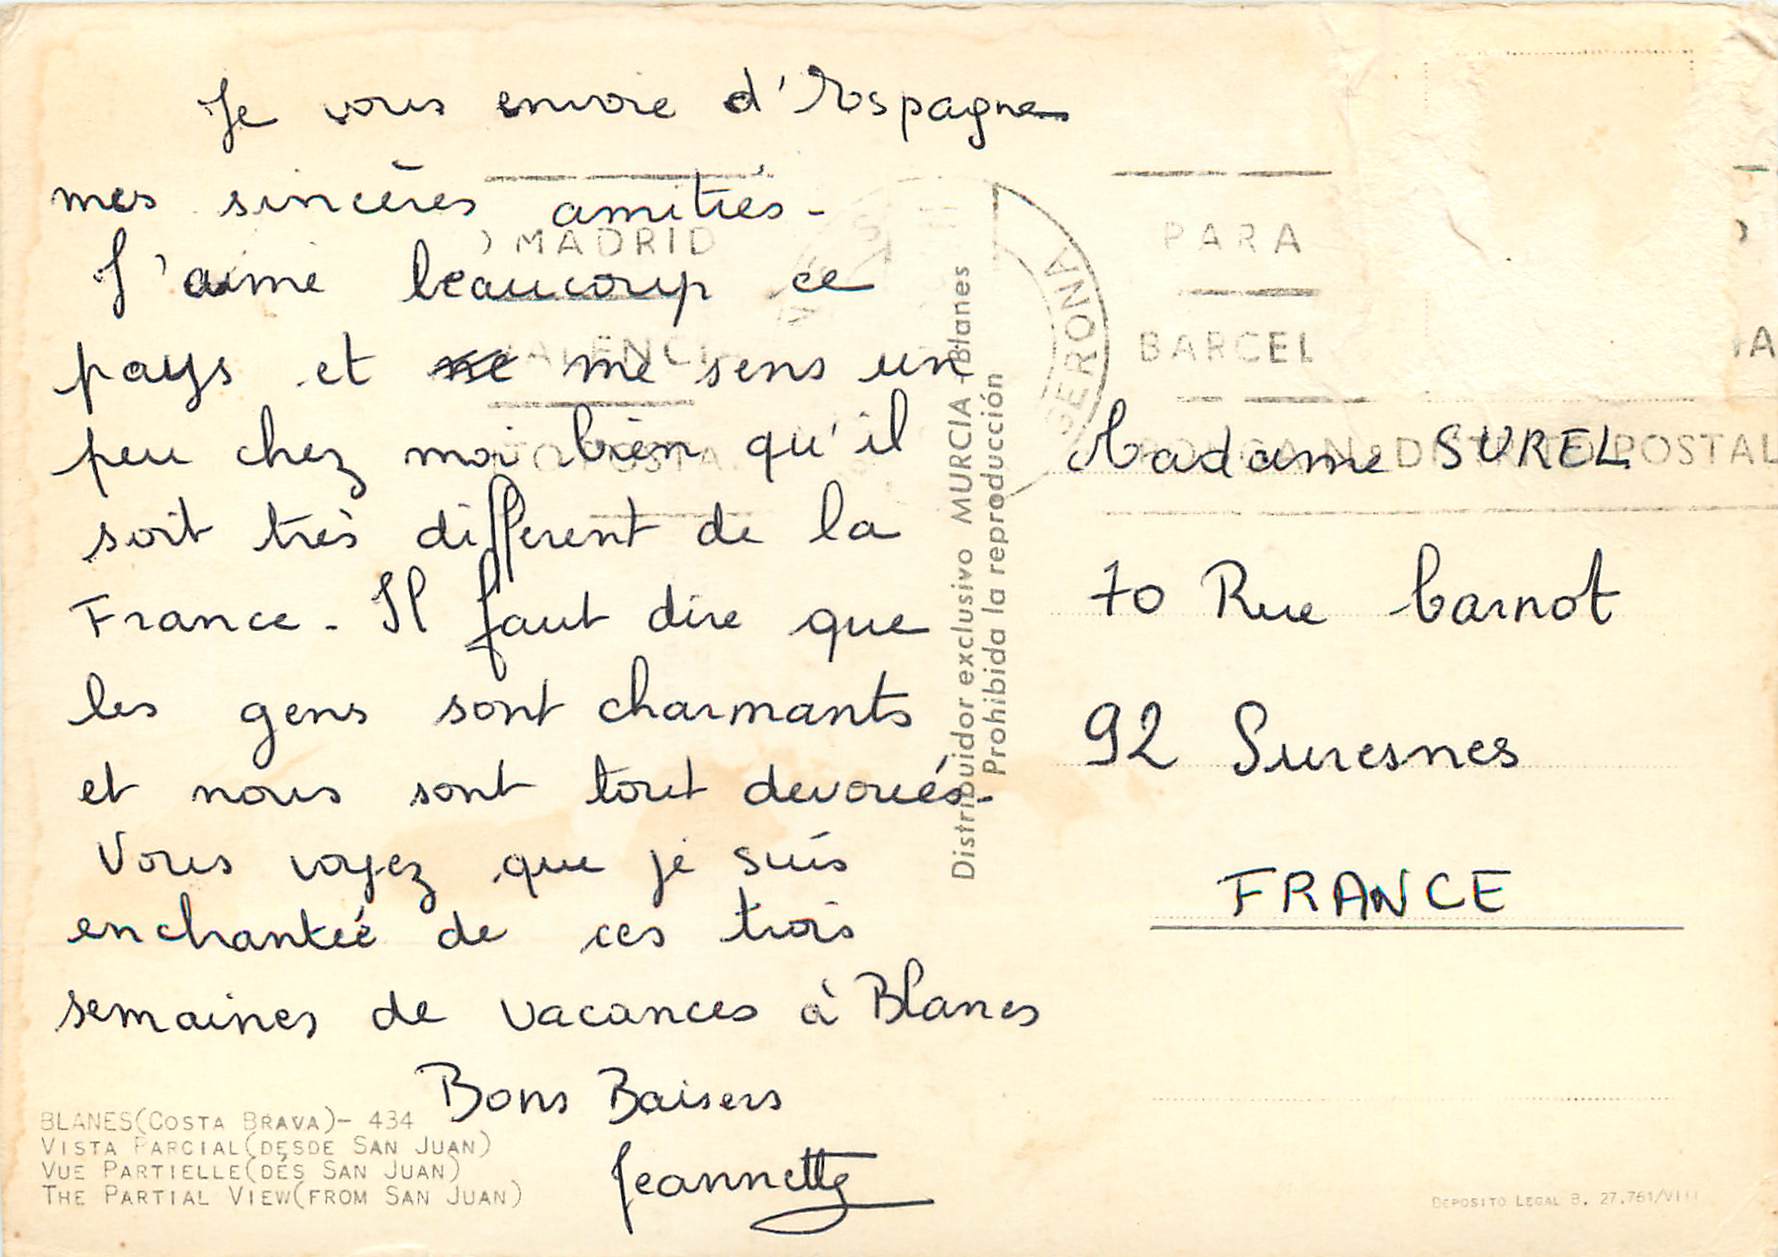 Je vous envoie d'Espagne
mes sincères amitiés -
J'aime beaucoup ce
pays et me sens un
peu chez moi bien qu'il
soit très différent de la
France - Il faut dire que
les gens sont charmants
et nous sont tout dévoués -
Vous voyez que je suis
enchantée de ces trois
semaines de vacances à Blanes
Bons Baisers
Jeannette
BLANES (COSTA BRAVA) - 434
VISTA PARCIAL (DESDE SAN JUAN)
VUE PARTIELLE (DÉS SAN JUAN)
THE PARTIAL VIEW (FROM SAN JUAN)
Distribuidor exclusivo MURCIA - Blanes
Prohibida la reproducción
MADRID
GERONA
PARA
BARCEL
DISTRITO POSTAL
Madame SUREL
70 Rue Carnot
92 Suresnes
FRANCE
DEPOSITO LEGAL B. 27.761/VIII